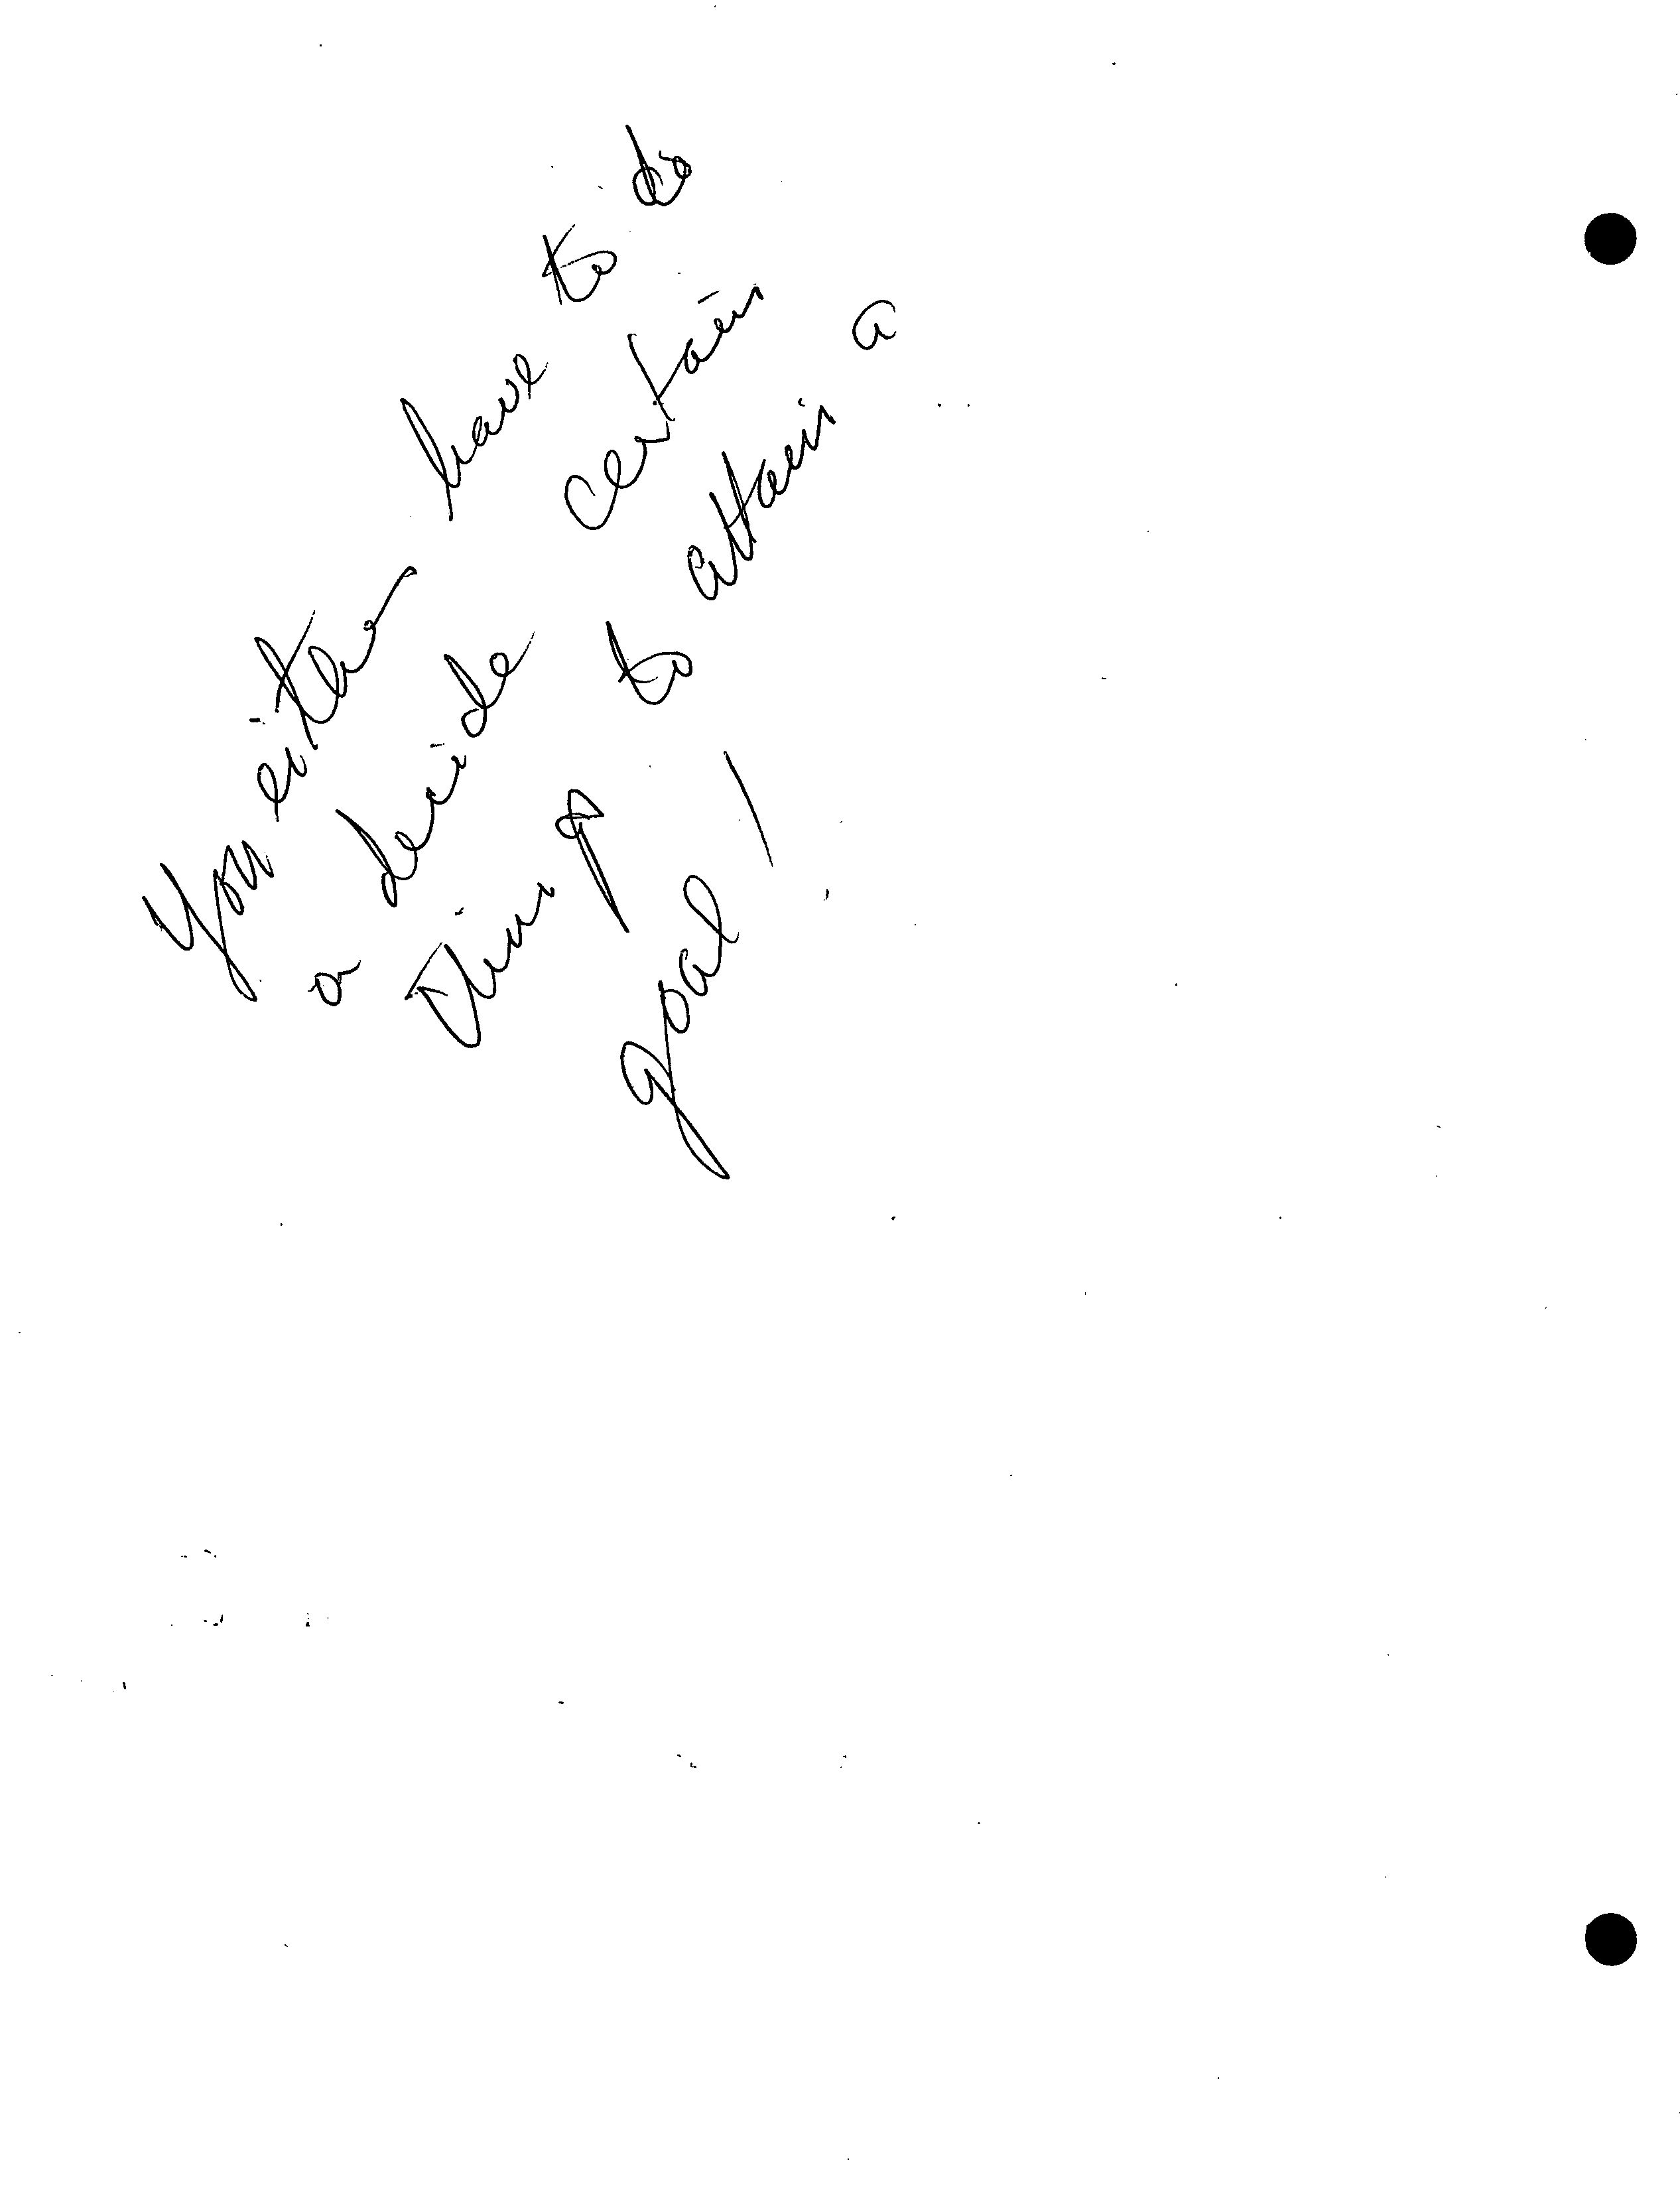 You either have to do
or decide certain
things to attain a
goal